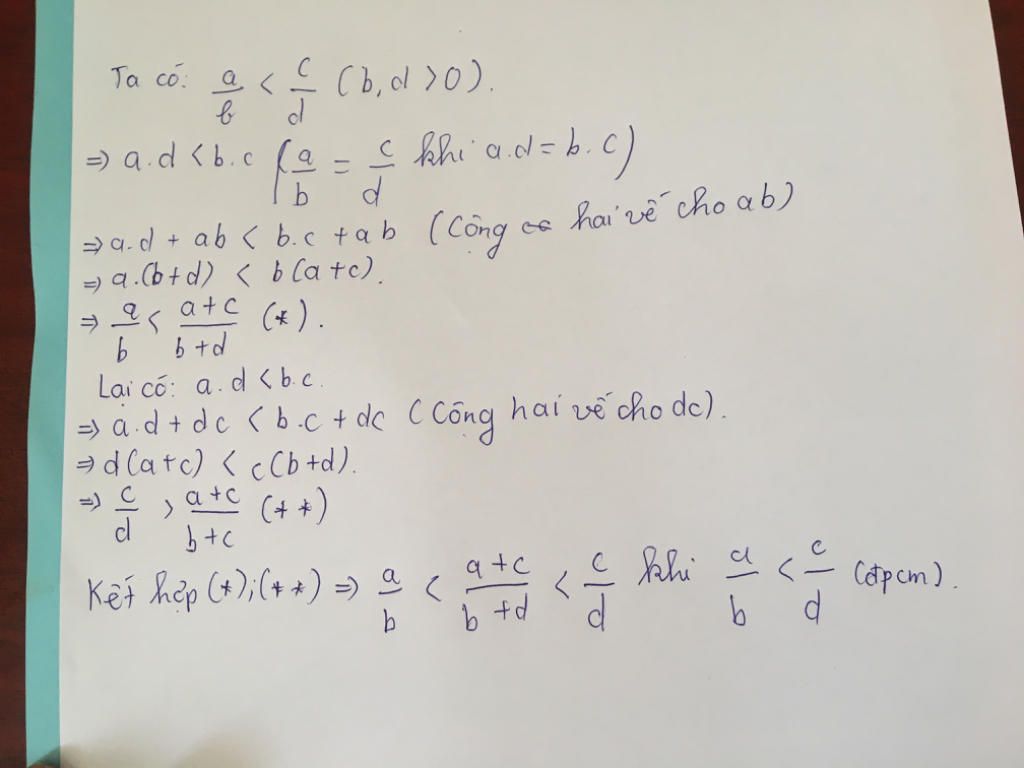 Ta có: a/b < c/d (b, d > 0).
=> a.d < b.c (a/b = c/d khi a.d = b.c)
=> a.d + ab < b.c + ab (Cộng hai vế cho ab)
=> a.(b+d) < b(a+c).
=> a/b < a+c/b+d (*).
Lại có: a.d < b.c.
=> a.d + dc < b.c + dc (Cộng hai vế cho dc).
=> d(a+c) < c(b+d).
=> c/d > a+c/b+c (**)
Kết hợp (*); (**) => a/b < a+c/b+d < c/d khi a/b < c/d (đpcm).